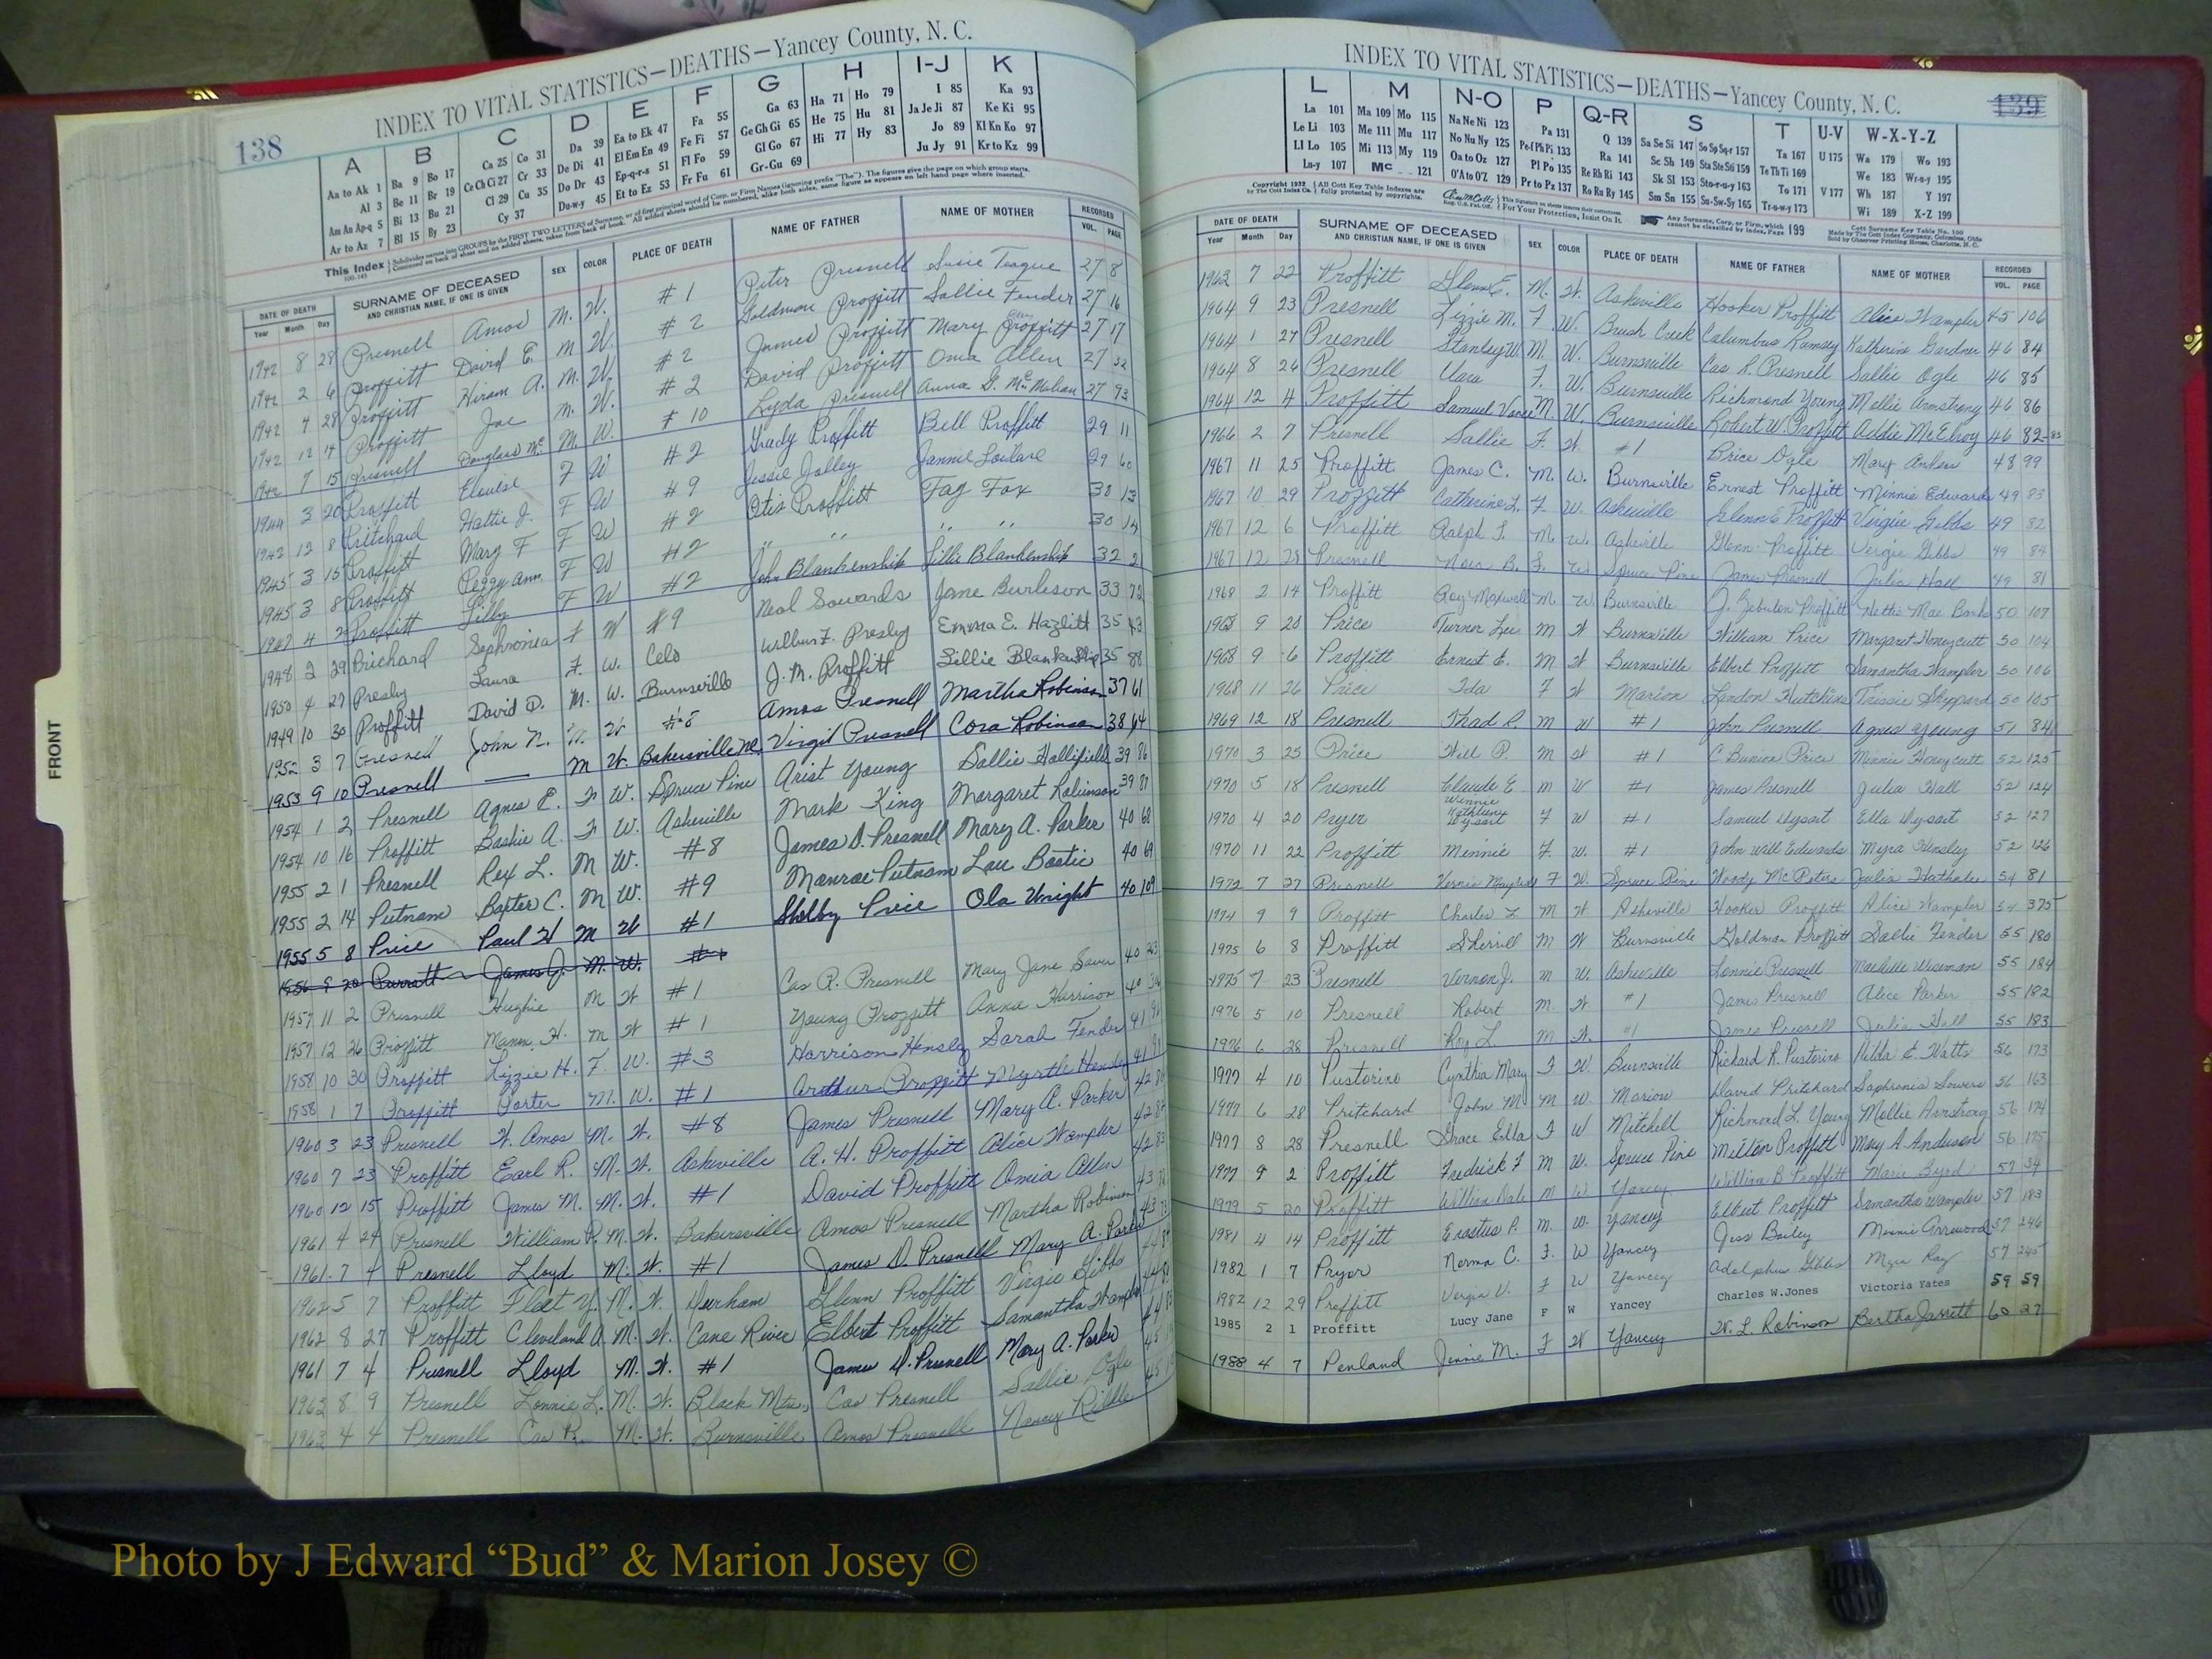 138
INDEX TO VITAL STATISTICS—DEATHS—Yancey County, N. C.
A B C D E F G H I-J K
Aa to Ak 1 Ba 9 Bo 17 Ca 25 Co 31 Da 39 Ea to Ek 47 Fa 55 Ga 63 Ha 71 Ho 79 I 85 Ka 93
Al 3 Be 11 Br 19 Ce Ch Ci 27 Cr 33 De Di 41 El Em En 49 Fe Fi 57 Ge Gh Gi 65 He 75 Hu 81 Ja Je Ji 87 Ke Ki 95
Am An Ap-q 5 Bi 13 Bu 21 Cl 29 Cu 35 Do Dr 43 Ep-q-r-s 51 Fl Fo 59 Gl Go 67 Hi 77 Hy 83 Jo 89 Kl Kn Ko 97
Ar to Az 7 Bl 15 By 23 Cy 37 Du-w-y 45 Et to Ez 53 Fr Fu 61 Gr-Gu 69 Ju Jy 91 Kr to Kz 99
This Index Subdivides names into GROUPS by the FIRST TWO LETTERS of Surname, or of first principal word of Corp. or Firm Names (ignoring prefix "The"). The figures give the page on which group starts.
Continued on back of sheet and on added sheets, taken from back of book. All added sheets should be numbered, alike both sides, same figure as appears on left hand page where inserted.
DATE OF DEATH SURNAME OF DECEASED AND CHRISTIAN NAME, IF ONE IS GIVEN SEX COLOR PLACE OF DEATH NAME OF FATHER NAME OF MOTHER RECORDED
Year Month Day VOL. PAGE
1942 8 28 Presnell Amos M. W. #1 Peter Presnell Susie Teague 27 8
1942 2 6 Proffitt David E. M W. #2 Goldman Proffitt Sallie Fender 27 16
1942 4 28 Proffitt Hiram A. M. W. #2 James Proffitt Mary Proffitt 27 17
1942 12 14 Proffitt Joe M. W. #2 David Proffitt Oma Allen 27 52
1942 7 15 Presnell Douglas Mc M W. #10 Lyda Presnell Anna G. McMahan 27 93
1944 3 20 Proffitt Elouise F W #2 Grady Proffitt Bell Proffitt 29 11
1942 12 8 Pritchard Hattie J. F W #9 Jessie Jolley 29 60
1945 3 15 Proffitt Mary F F W #2 Otis Proffitt Fay Fox 30 13
1945 3 8 Proffitt Peggy Ann F W #2 " " " " 30 14
1947 4 2 Proffitt Lilly F W #2 John Blankenship Lillie Blankenship 32 2
1948 2 29 Prichard Sephronia F W #9 Neal Sowards Jane Burleson 33 72
1950 4 27 Presley Laura F. W. Celo Wilbur F. Presley Emma E. Hazlitt 35 43
1949 10 30 Proffitt David D. M. W. Burnsville J. M. Proffitt Lillie Blankenship 35 88
1952 3 7 Presnell John N. M. W #8 Amos Presnell Martha Robinson 37 61
1953 9 10 Presnell — M W. Bakersville Virgil Presnell Cora Robinson 38 64
1954 1 2 Presnell Agnes E. F W. Spruce Pine Arist Young Sallie Hallifield 39 86
1954 10 16 Proffitt Baskie A. F W. Asheville Mark King Margaret Robinson 39 87
1955 2 1 Presnell Rex L. M W. #8 James D. Presnell Mary A. Parker 40 68
1955 2 14 Putnam Baxter C. M W. #9 Monroe Putnam Lou Bostic 40 69
1955 5 8 Price Paul W M W #1 Shelby Price Ola Wright 40 109
1956 9 20 Parrott James J. M. W. #1
1957 11 2 Presnell Hughie M W #1 Cas R. Presnell Mary Jane 40 23
1957 12 26 Proffitt Mann. H. M W #1 Young Proffitt Anna Harrison
1958 10 30 Proffitt Lizzie H. F. W. #3 Harrison Hensley Sarah Fender
1958 1 7 Proffitt Porter M. W. #1 Arthur Proffitt Myrtle
1960 3 23 Presnell W. Amos M. W. #8 James Presnell Mary A. Parker
1960 7 23 Proffitt Earl R. M. W. Asheville A. H. Proffitt Alice Wampler
1960 12 15 Proffitt James M. M. W. #1 David Proffitt Omia Allen
1961 4 24 Presnell William P. M. W. Bakersville Amos Presnell Martha Robinson
1961 7 4 Presnell Lloyd M. W. #1 James D. Presnell Mary A. Parker
1962 5 7 Proffitt Fleet Y. M. W. Durham Glenn Proffitt Virgie Gibbs
1962 8 27 Proffitt Cleveland A. M. W. Cane River Elbert Proffitt Samantha Wampler
1961 7 4 Presnell Lloyd M. W. #1 James D. Presnell Mary A. Parker
1963 8 9 Presnell Lonnie L. M. W. Black Mtn, Cas Presnell Sallie Ogle
1963 4 4 Presnell Cas R. M. W. Burnsville Amos Presnell Nancy Riddle
INDEX TO VITAL STATISTICS—DEATHS—Yancey County, N. C.
139
L M N-O P Q-R S T U-V W-X-Y-Z
La 101 Ma 109 Mo 115 Na Ne Ni 123 Pa 131 Q 139 Sa Se Si 147 So Sp Sq-r 157 Ta 167 U 175 Wa 179 Wo 193
Le Li 103 Me 111 Mu 117 No Nu Ny 125 Pe-f Ph Pi 133 Ra 141 Sc Sh 149 Sta Ste Sti 159 Te Th Ti 169 We 183 Wr-u-y 195
Ll Lo 105 Mi 113 My 119 Oa to Oz 127 Pl Po 135 Re Rh Ri 143 Sk Sl 153 Sto-r-u-y 163 To 171 V 177 Wh 187 Y 197
Lu-y 107 Mc 121 O'A to O'Z 129 Pr to Pz 137 Ro Ru Ry 145 Sm Sn 155 Su-Sw-Sy 165 Tr-u-w-y 173 Wi 189 X-Z 199
Copyright 1932 by The Cott Index Co. All Cott Key Table Indexes are fully protected by copyrights. For Your Protection, Insist On It. Any Surname, Corp. or Firm, which cannot be classified by index, Page 199
Cott Surname Key Table No. 100
Made by The Cott Index Company, Columbus, Ohio
Sold by Observer Printing House, Charlotte, N. C.
DATE OF DEATH SURNAME OF DECEASED AND CHRISTIAN NAME, IF ONE IS GIVEN SEX COLOR PLACE OF DEATH NAME OF FATHER NAME OF MOTHER RECORDED
Year Month Day VOL. PAGE
1963 7 22 Proffitt Glenn E. M. W. Asheville Hooker Proffitt Alice Wampler 45 106
1964 9 23 Presnell Lizzie M. F. W. Brush Creek Columbus Ramsey Katherine Gardner 46 84
1964 1 27 Presnell Stanley W. M. W. Burnsville Cas R. Presnell Sallie Ogle 46 85
1964 8 26 Presnell Vara F. W. Burnsville Richmond Young Mollie Armstrong 46 86
1964 12 4 Proffitt Samuel Vance M. W. Burnsville Robert W. Proffitt Addie McElroy 46 82-83
1966 2 7 Presnell Sallie F. W #1 Brice Ogle Mary 48 99
1967 11 25 Proffitt James C. M. W. Burnsville Ernest Proffitt Minnie Edwards 49 83
1967 10 29 Proffitt Catherine L. F. W. Asheville Glenn E Proffitt Virgie Gibbs 49 82
1967 12 6 Proffitt Ralph F. M. W. Asheville Glenn Proffitt Vergie Gibbs 49 84
1967 12 28 Presnell Nora B. F. W Spruce Pine James Presnell Julia Hall 49 81
1968 2 14 Proffitt Roy Maxwell M. W. Burnsville J. Zebulon Proffitt Hettie Mae Banks 50 107
1968 9 20 Price Turner Lee M W Burnsville William Price Margaret Honeycutt 50 104
1968 9 6 Proffitt Ernest E. M W Burnsville Elbert Proffitt Samantha Wampler 50 106
1968 11 26 Price Ida F W Marion Landon Hutchins Tressie Sheppard 50 105
1969 12 18 Presnell Thad R. M W #1 John Presnell Agnes Young 51 84
1970 3 25 Price Will P. M W #1 C Bunion Price Minnie Honeycutt 52 125
1970 5 18 Presnell Claude E M W #1 James Presnell Julia Hall 52 124
1970 4 20 Pryer Winnie Kathleen Wysart F W #1 Samuel Wysart Ella Wysart 52 127
1970 11 22 Proffitt Minnie F. W. #1 John Will Edwards Myra Hensley 52 126
1972 7 27 Presnell F W. Spruce Pine Woody McPeters Julia 54 81
1974 9 9 Proffitt Charles Z M W Asheville Hooker Proffitt Alice Wampler 54 375
1975 6 8 Proffitt Sherrill M W Burnsville Goldman Proffitt Sallie Fender 55 180
1975 7 23 Presnell Vernon J. M W. Asheville Lonnie Presnell Maebelle Wiseman 55 184
1976 5 10 Presnell Robert M. W #1 James Presnell Alice Parker 55 182
1976 6 28 Presnell Roy L. M W. #1 James Presnell Julia Hall 55 183
1977 4 10 Pustorino Cynthia Mary F W. Burnsville Richard R. Pustorino Hilda E. Watts 56 173
1977 6 28 Pritchard John M M W Marion David Pritchard Saphronia Sowers 56 163
1977 8 28 Presnell Grace Ella F W Mitchell Richmond L. Young Mollie Armstrong 56 174
1977 9 2 Proffitt Fredrick F M W. Spruce Pine Milton Proffitt Mary A. Anderson 56 175
1979 5 20 Proffitt William Dale M W Yancey William B Proffitt Marie Byrd 57 34
1981 4 14 Proffitt Erastus P. M. W. Yancey Elbert Proffitt Samantha Wampler 57 183
1982 1 7 Pryor Norma C. F. W Yancey Jess Bailey Minnie Arrowood 57 246
1982 12 29 Proffitt Vergie V. F W Yancey Adolphus Gibbs Myra Ray 57 245
1985 2 1 Proffitt Lucy Jane F W Yancey Charles W.Jones Victoria Yates 59 59
1988 4 7 Penland Jennie M. F W Yancey W. L. Robinson Bertha Jarrett 60 27
FRONT
Photo by J Edward “Bud” & Marion Josey ©